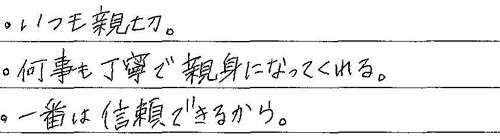 ・いつも親切。
・何事も丁寧で親身になってくれる。
・一番は信頼できるから。